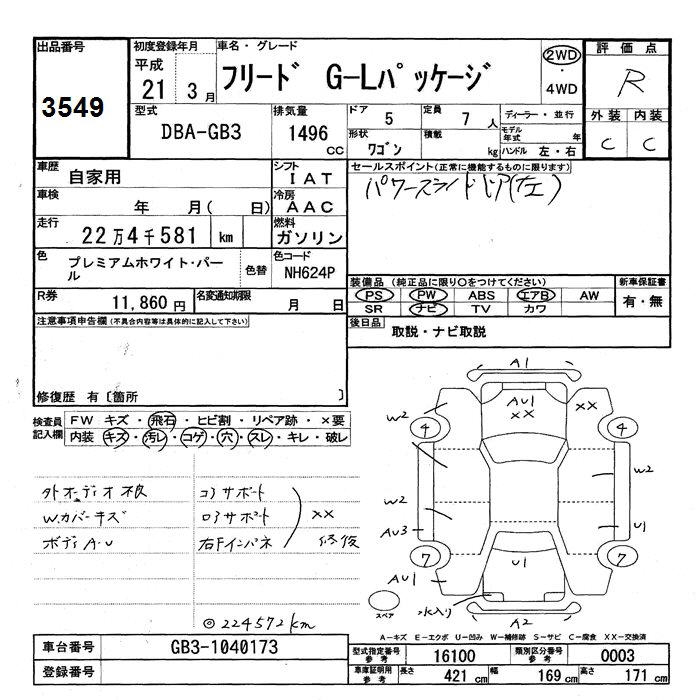 出品番号
3549
初度登録年月
平成
21 3月
車名・グレード
フリード G-Lパッケージ
2WD
・
4WD
評価点
R
外装 内装
C C
型式
DBA-GB3
排気量
1496
CC
ドア 5
定員 7 人
形状 ワゴン
積載 kg
ディーラー・並行
モデル年式 年
ハンドル 左・右
車歴 自家用
シフト IAT
車検 年 月( 日)
冷房 AAC
走行 22万4千581 km
燃料 ガソリン
色 プレミアムホワイト・パール
色替
色コード NH624P
R券 11,860円
名変通知期限 月 日
セールスポイント(正常に機能するものに限ります)
パワースライドドア(左)
装備品 (純正品に限り○をつけてください)
PS PW ABS エアB AW
SR ナビ TV カワ
新車保証書
有・無
後日品 取説・ナビ取説
注意事項申告欄(不具合内容等は具体的に記入して下さい)
修復歴 有〔箇所 〕
検査員記入欄
FW キズ・飛石・ヒビ割・リペア跡・×要
内装 キズ・汚レ・コゲ・穴・スレ・キレ・破レ
外オーディオ不良
W.カバーキズ
ボディA・U
コアサポート
ロアサポート
右Fインパネ
XX
修復
◎224572km
A1
AU1
XX
XX
W2
4
4
W2
W2
AU3
U1
7
7
U1
AU1
水入り
A2
スペア
A-キズ E-エクボ U-凹み W-補修跡 S-サビ C-腐食 XX-交換済
車台番号 GB3-1040173
登録番号
型式指定番号 参考 16100
類別区分番号 参考 0003
車庫証明用 参考 長さ 421 cm 幅 169 cm 高さ 171 cm